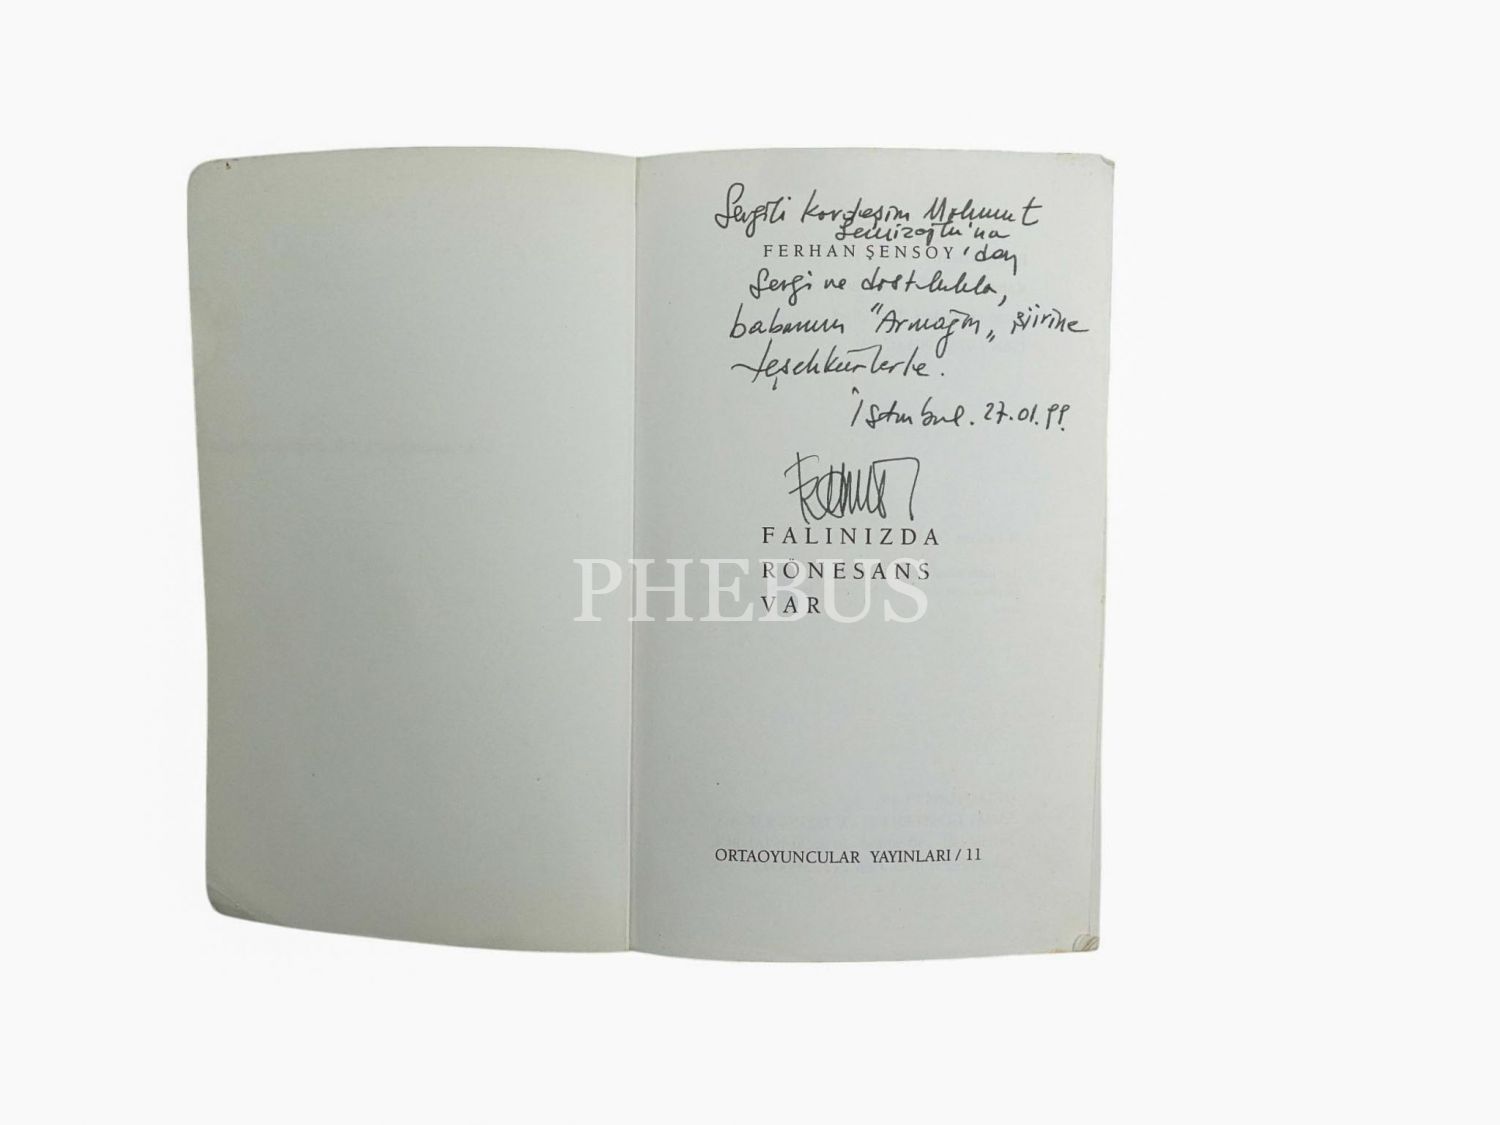 Sevgili kardeşim Mahmut
Semizoğlu'na
FERHAN ŞENSOY 'dan
Sevgi ve dostlukla,
babanın "Armağan" şiirine
teşekkürlerle.
İstanbul. 27.01.99.
FALINIZDA
RÖNESANS
PHEBUS
VAR
ORTAOYUNCULAR YAYINLARI / 11